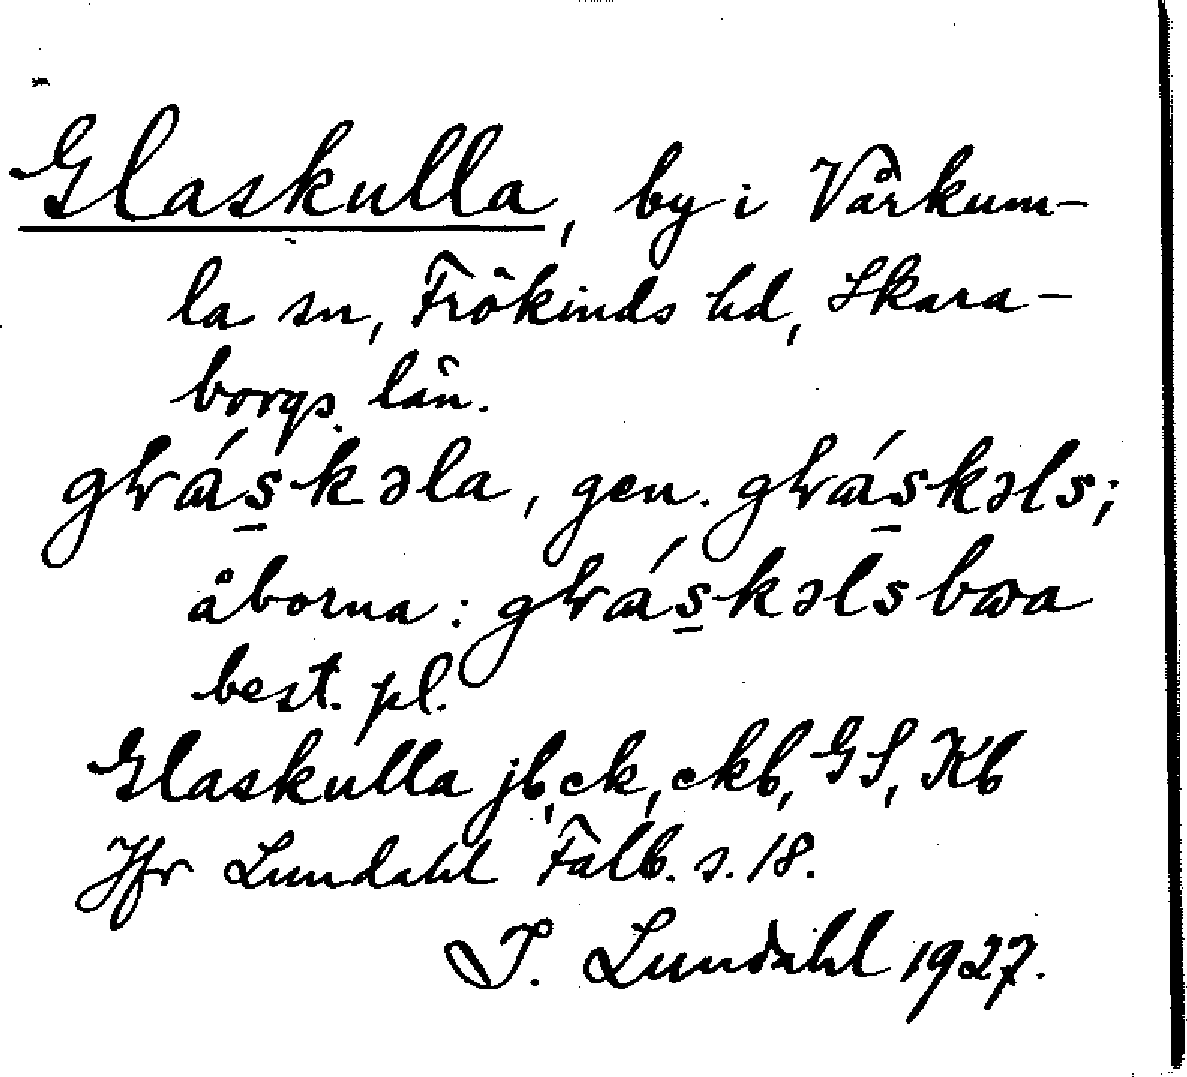 Glaskulla, by i Vårkum-
la sn, Frökinds hd, Skara-
borgs län.
glɑ́s̲kəla, gen. glɑ́s̲kəls;
åborna: glɑ́s̲kəls
best. pl.
Glaskulla jb, ck, ckb, GS, Kb
Jfr Lundahl Falb. s. 18.
I. Lundahl 1927.